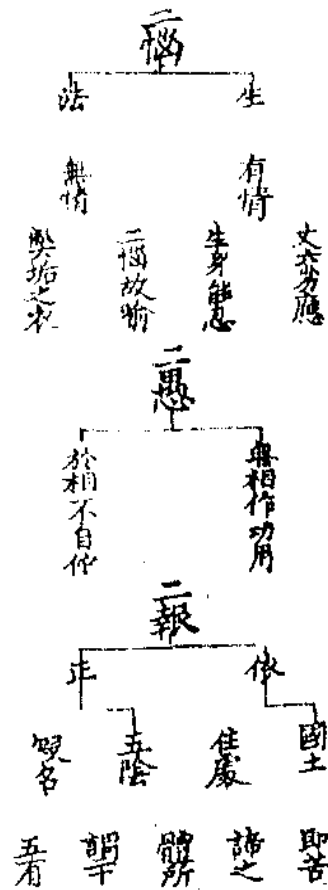 二惱
生
法
有情
無情
丈六劣應
生身能忍
二惱故喻
弊垢之衣
二愚
無相作功用
於相不自在
二報
依
正
國土
住處
五陰
假名
即苦
諦之
體所
謂二十
五有